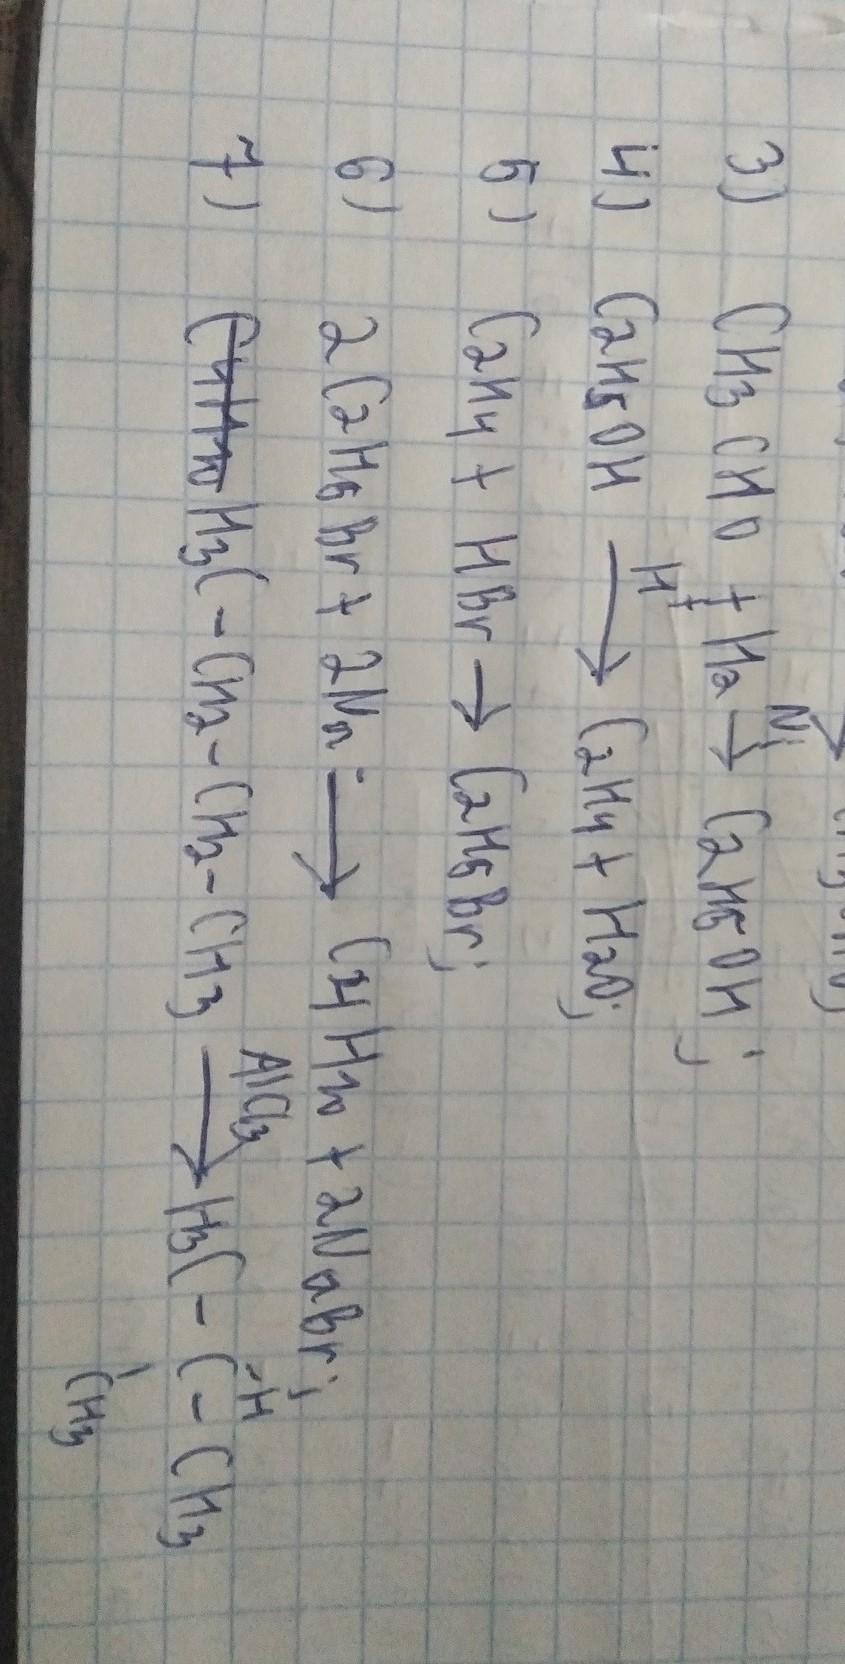 3) CH3CHO + H2 →Ni C2H5OH;
4) C2H5OH →H+ C2H4 + H2O;
5) C2H4 + HBr → C2H5Br;
6) 2C2H5Br + 2Na → C4H10 + 2NaBr;
7) C4H10 H3C-CH2-CH2-CH3 →AlCl3 H3C-C-CH3
H
CH3